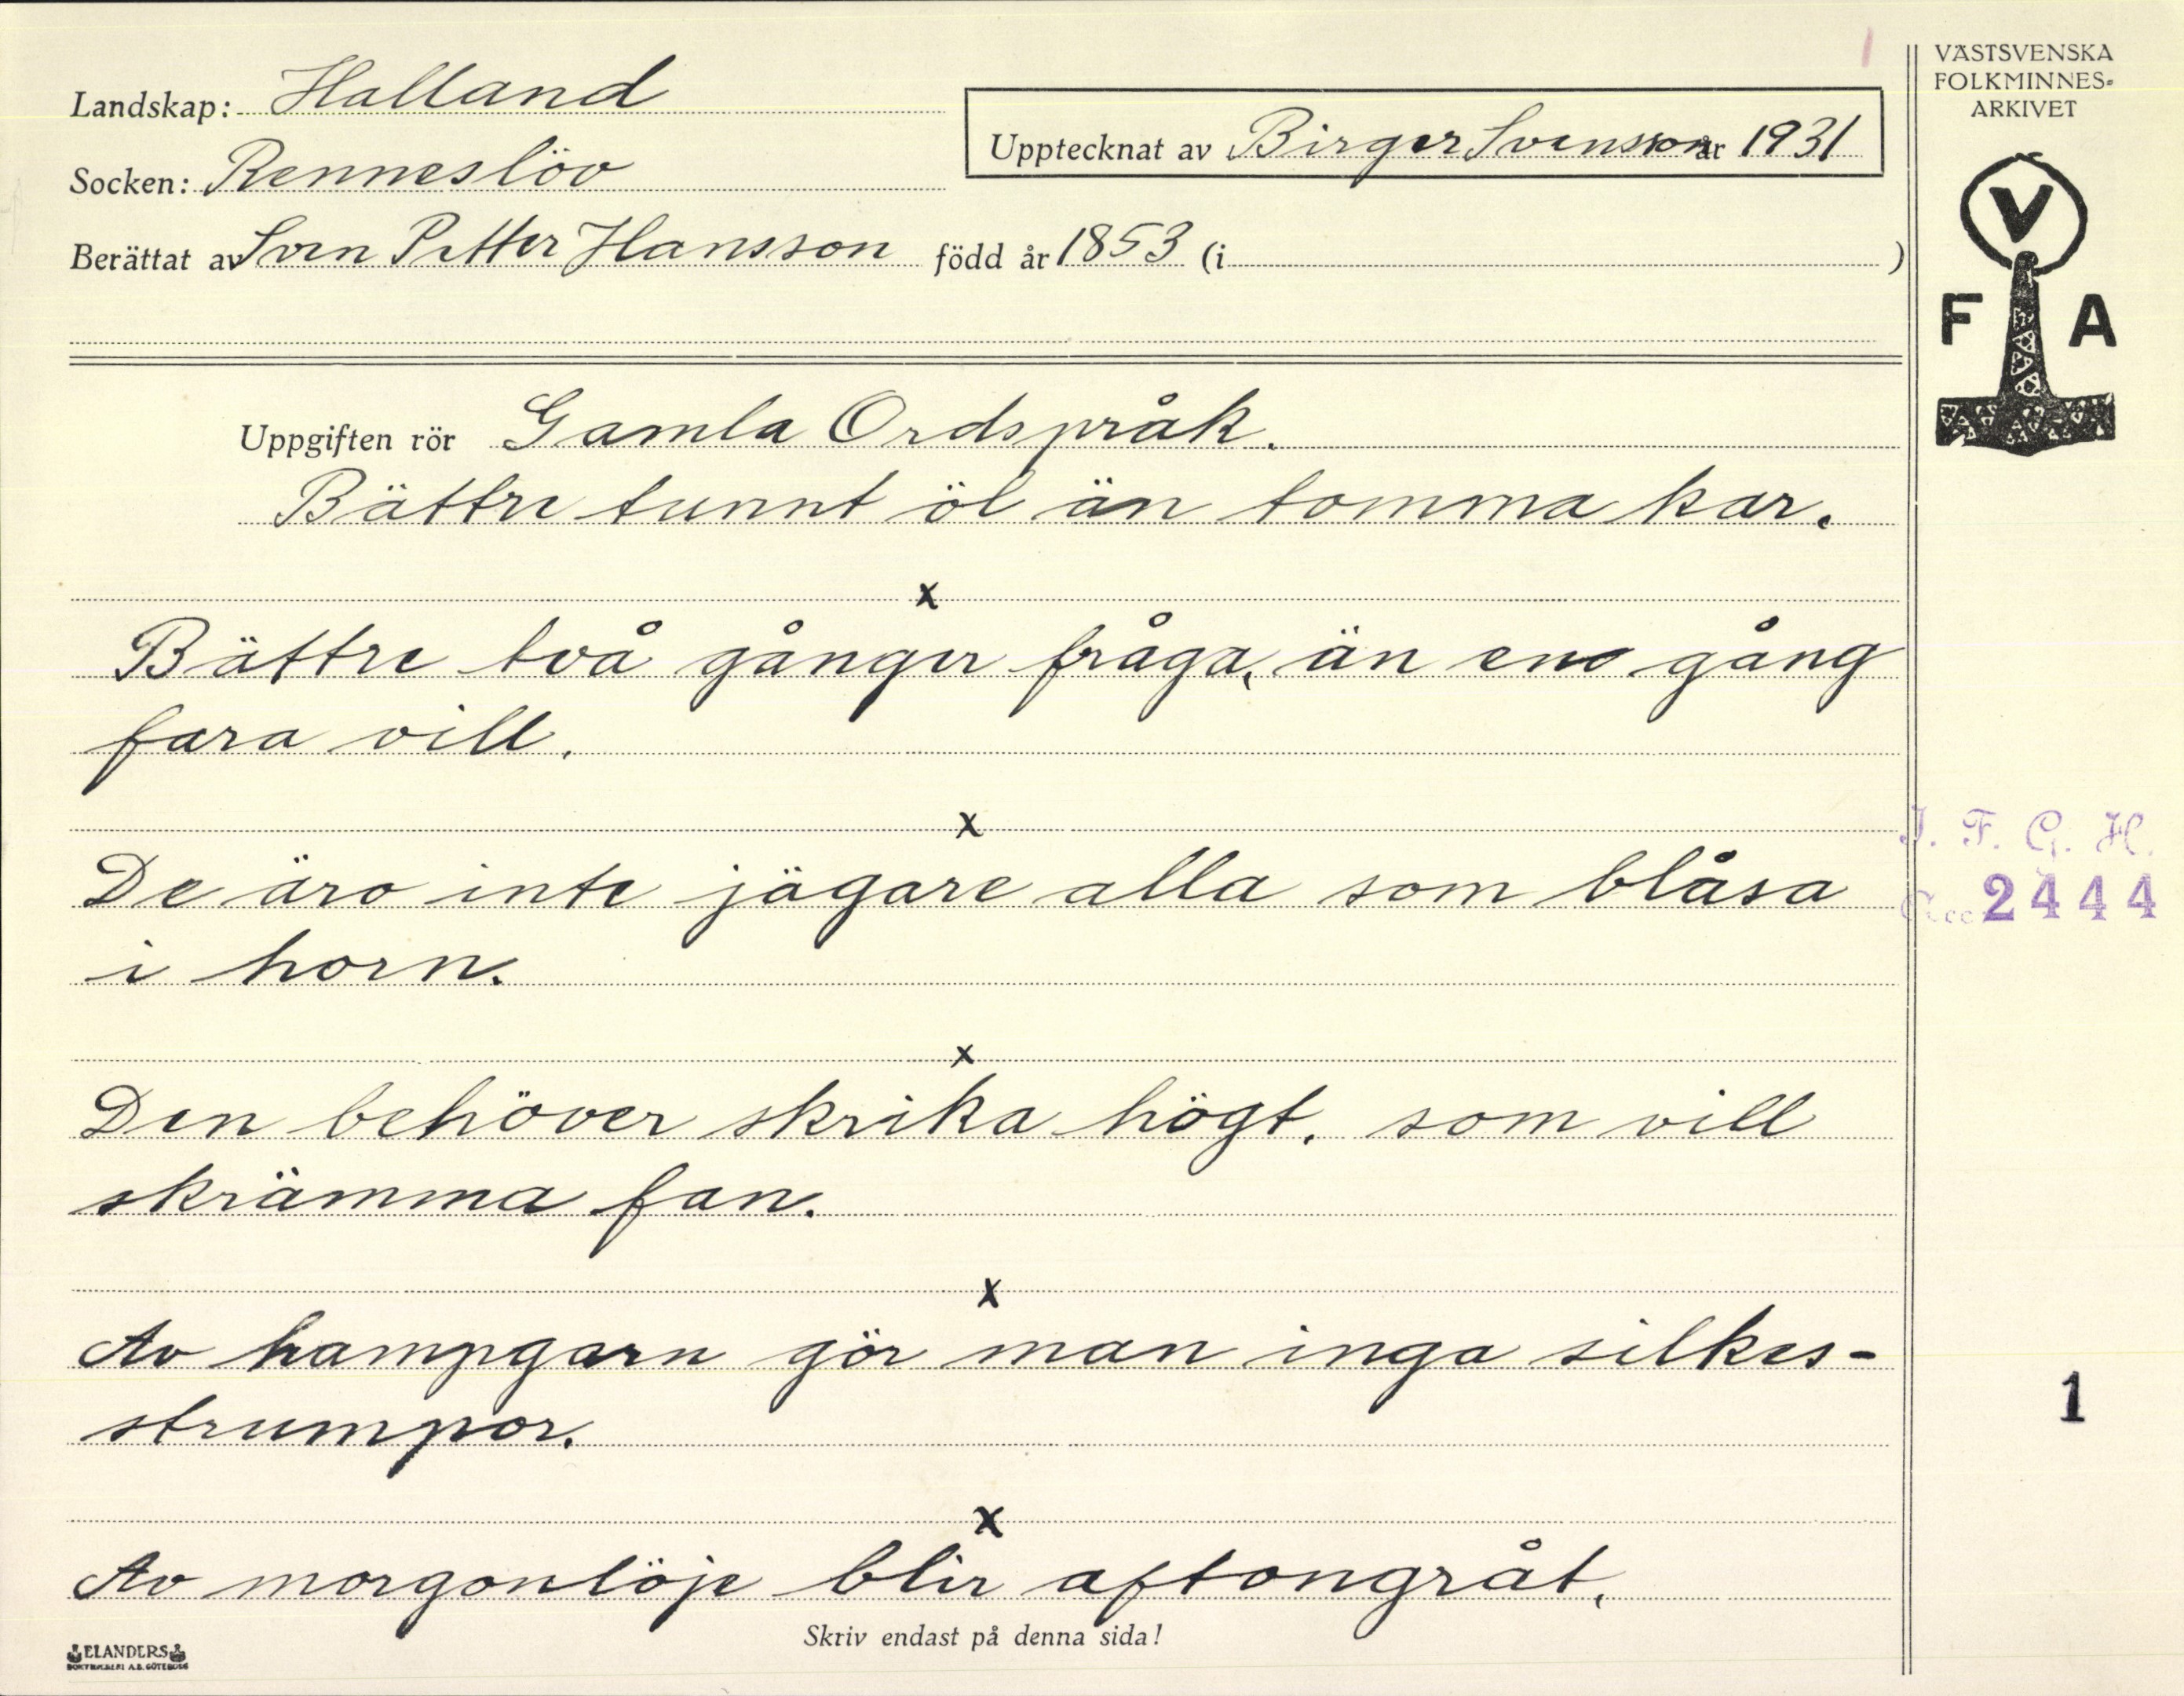 Landskap: Halland
Socken: Renneslöv
Upptecknat av Birger Svensson år 1931
Berättat av Sven Petter Hansson född år 1853 (i )
Uppgiften rör Gamla Ordspråk.
Bättre tunnt öl än tomma kar.
x
Bättre två gånger fråga, än en gång
fara vill.
x
De äro inte jägare alla som blåsa
i horn.
x
Den behöver skrika högt, som vill
skrämma fan.
x
Av hampgarn gör man inga silkes-
strumpor.
x
Av morgonlöje blir aftongråt.
Skriv endast på denna sida!
ELANDERS
BOKTRYCKERI A.B. GÖTEBORG
VÄSTSVENSKA
FOLKMINNES-
ARKIVET
V
F A
I. F. G. H.
Acc 2444
1